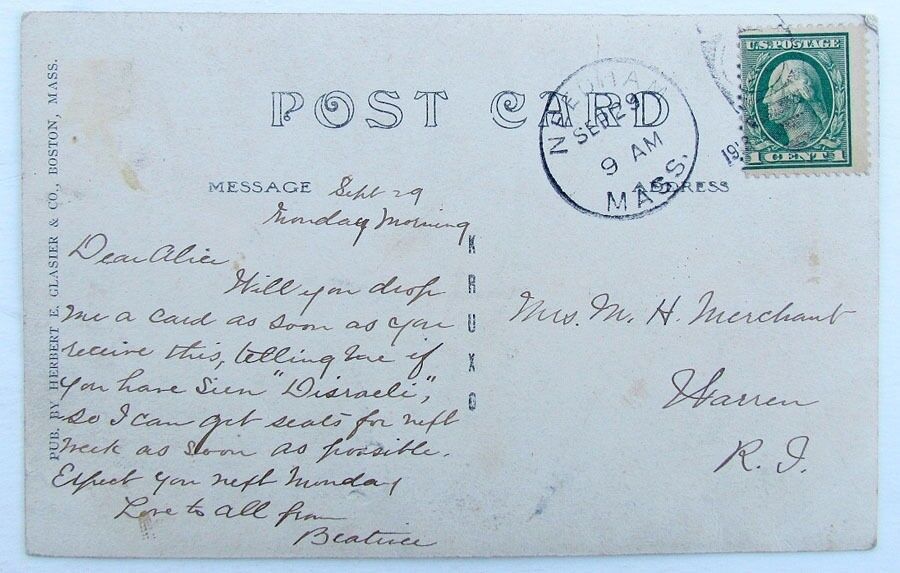 POST CARD
PUB. BY HERBERT E. GLASIER & CO., BOSTON, MASS.
MESSAGE
ADDRESS
KRUXO
U.S. POSTAGE
1 CENT 1
SEP 29
9 AM
MASS.
Sept 29
Monday Morning
Dear Alice
Will you drop
me a card as soon as you
receive this, telling me if
you have seen "Disraeli",
so I can get seats for next
week as soon as possible.
Expect you next Monday
Love to all from
Beatrice
Mrs. M. H. Merchant
Warren
R. I.